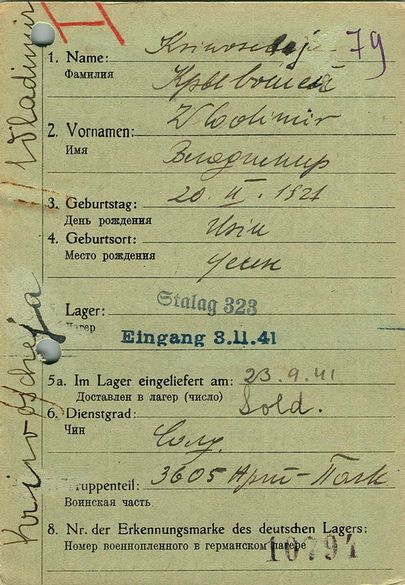 79
1. Name:
Фамилия
2. Vornamen: Wlodimir
Имя Владимир
3. Geburtstag: 20. II. 1921
День рождения
4. Geburtsort:
Место рождения
Lager: Stalag 323
Лагер Eingang 3.11.41
5a. Im Lager eingeliefert am: 23.9.41
Доставлен в лагер (число)
6. Dienstgrad: Sold.
Чин Солд.
Truppenteil: 3605 Арт-Полк
Воинская часть
8. Nr. der Erkennungsmarke des deutschen Lagers:
Номер военнопленного в германском лагере 10794
Wladimir